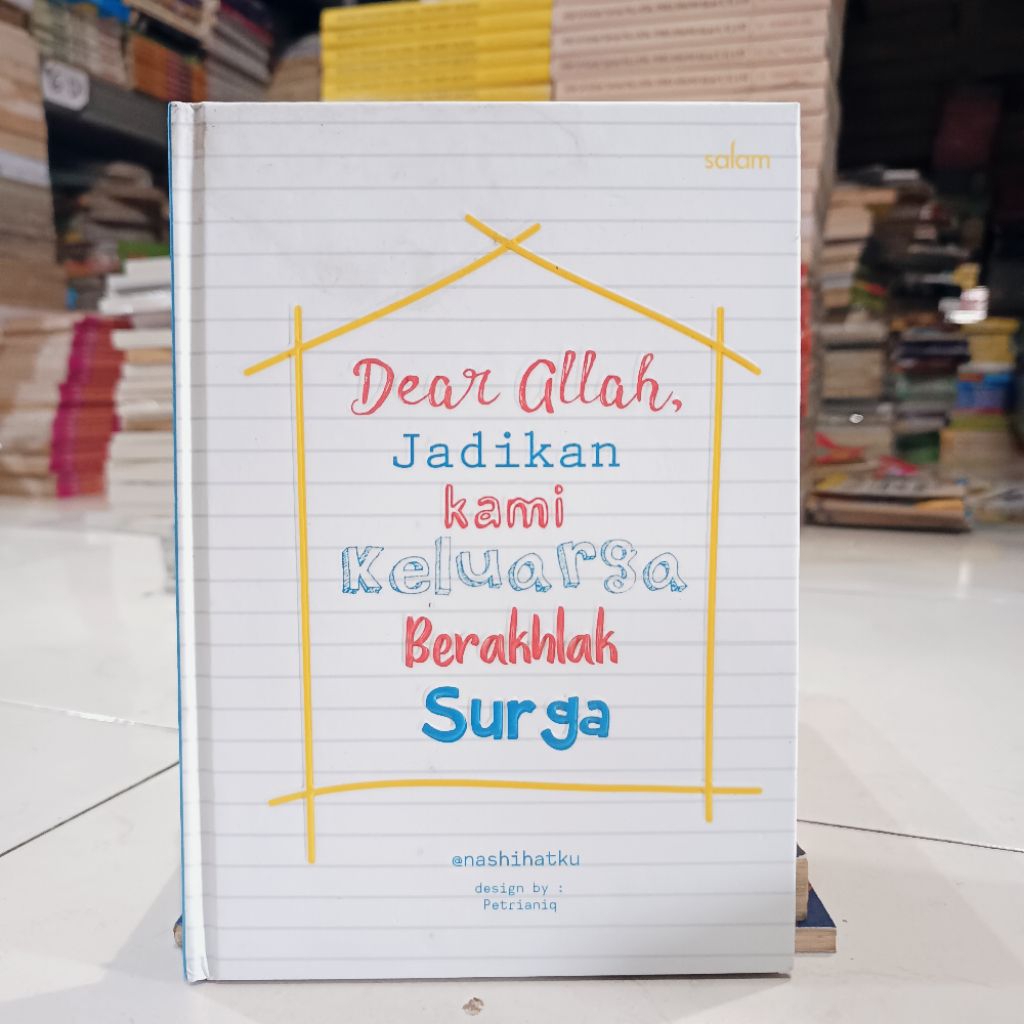 salam
Dear Allah,
Jadikan
kami
Keluarga
Berakhlak
Surga
@nashihatku
design by :
Petrianiq